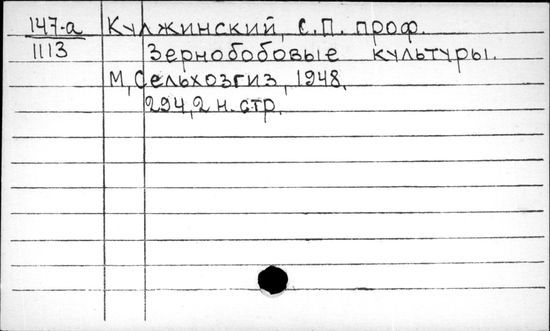 147-а Кулжинский, С.П. проф.
1113 Зернобобовые культуры.
М, Сельхозгиз, 1948.
294, 2 н. стр.